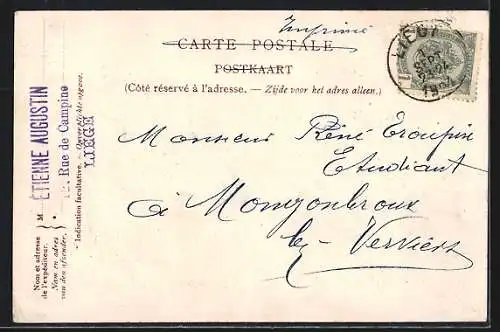 Imprimé
CARTE POSTALE
POSTKAART
(Côté réservé à l'adresse. — Zijde voor het adres alleen.)
LIEGE
1
Monsieur René
Etudiant
à Mongonbroux
lez - Verviers
Nom et adresse
de l'expéditeur.
Naam en adres
van den afzender.
M
ÉTIENNE AUGUSTIN
Rue de Campine
LIÉGE
- Indication facultative. - Onverplichte opgave.